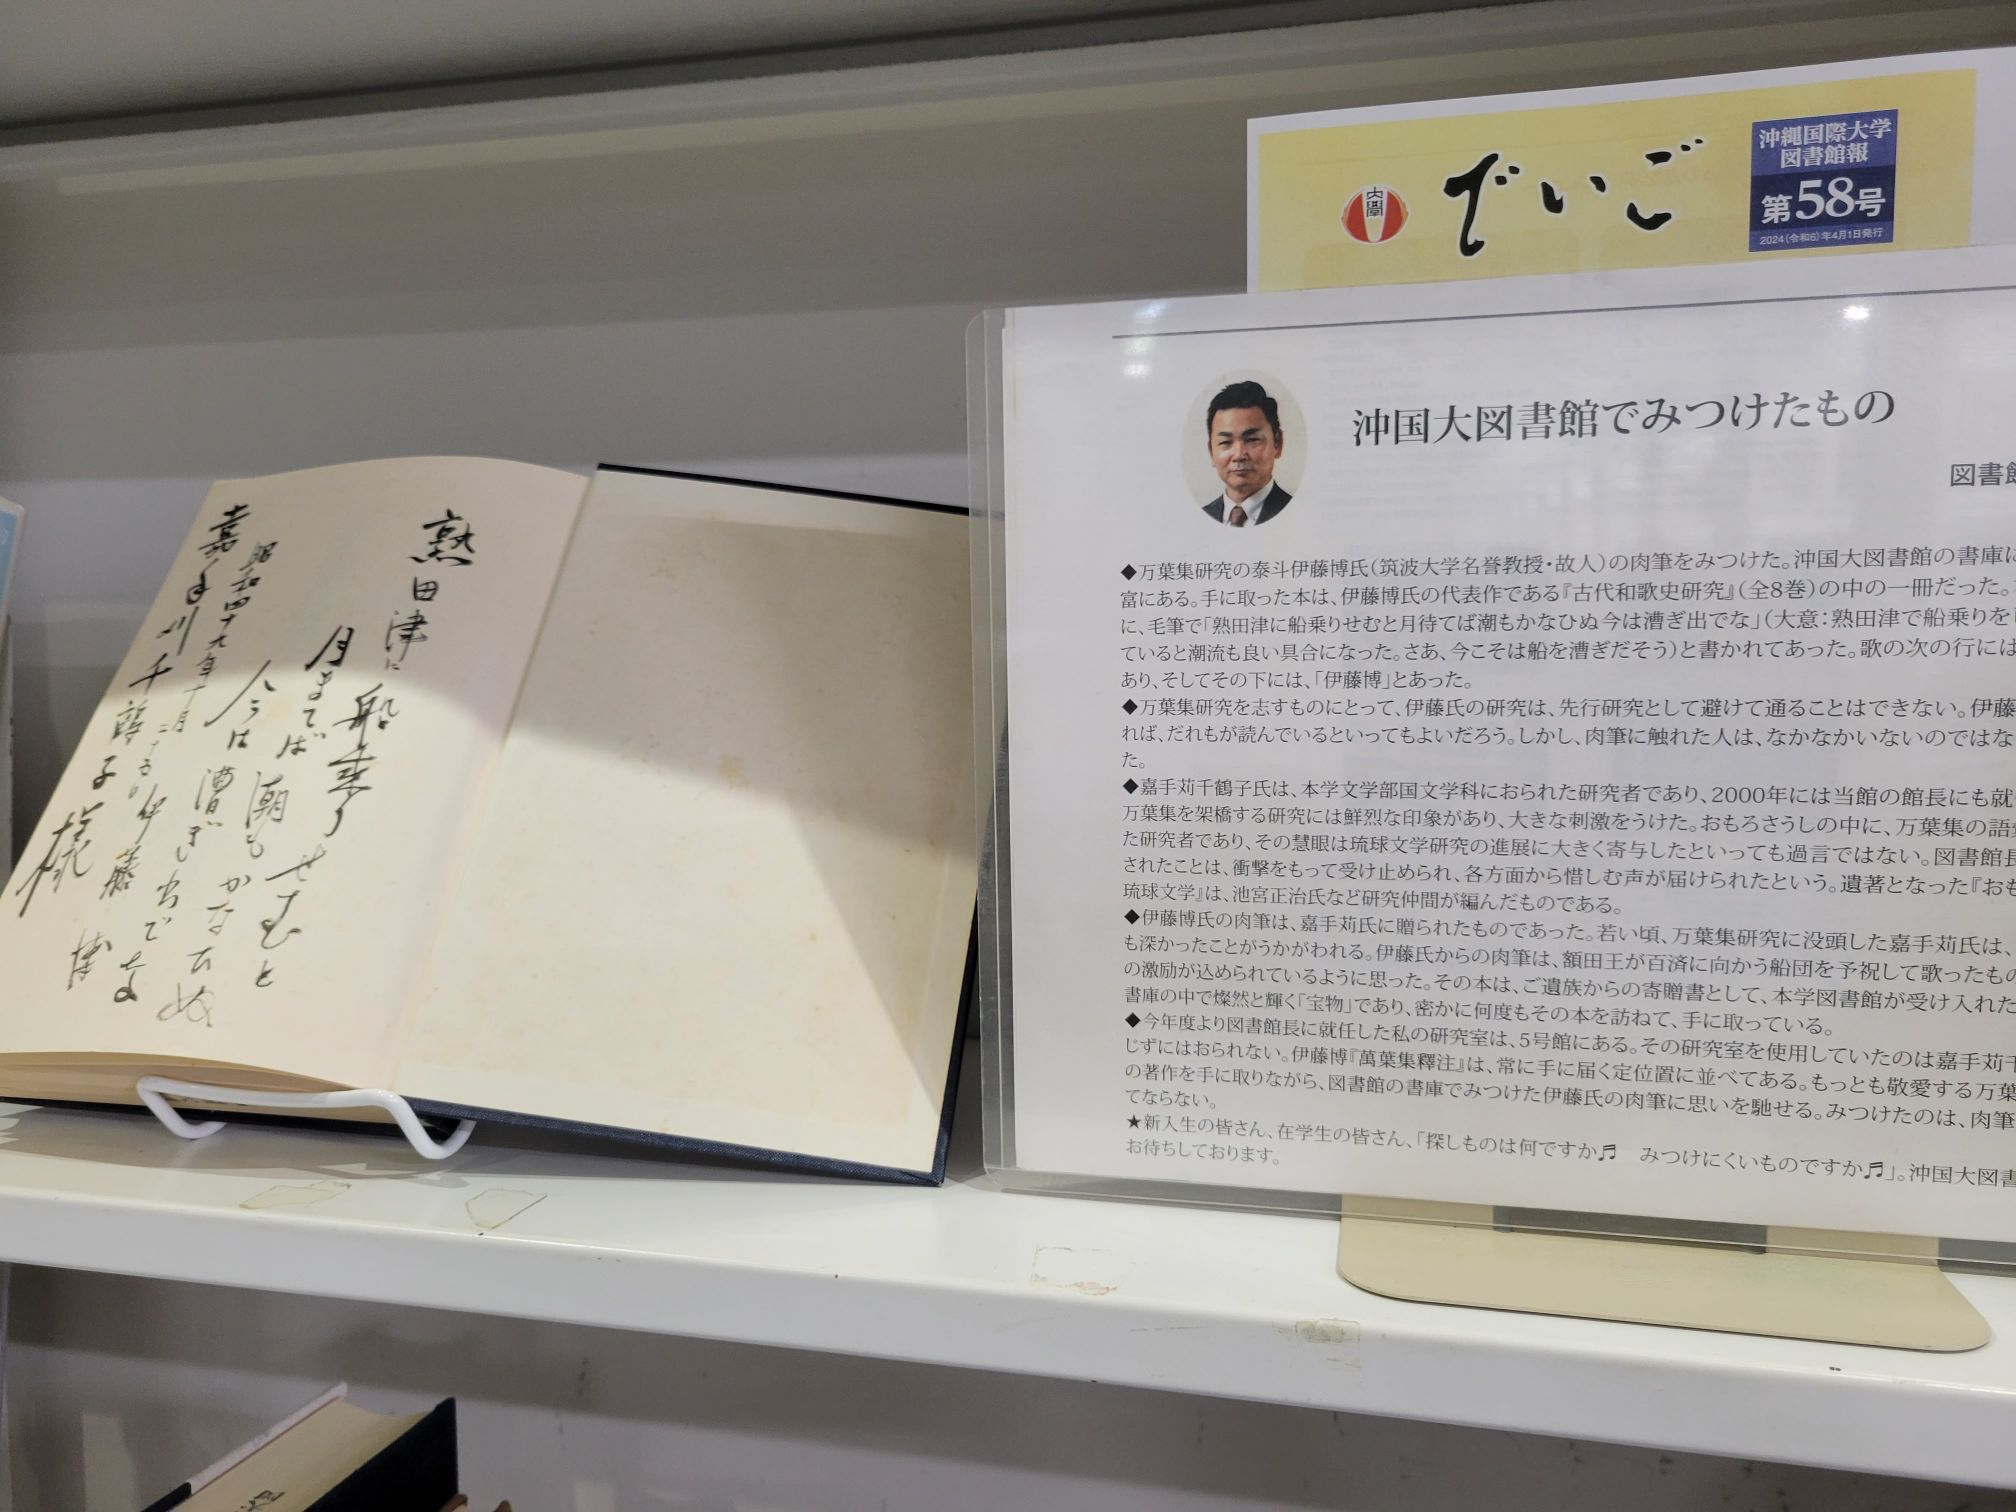 熟田津に船乗りせむと
月まてば潮もかなひぬ
今は漕ぎ出でな
昭和四十九年十月二十五日 伊藤 博
嘉手川千鶴子様
大學
でいご
沖縄国際大学
図書館報
第58号
2024(令和6)年4月1日発行
沖国大図書館でみつけたもの
図書館
◆万葉集研究の泰斗伊藤博氏(筑波大学名誉教授・故人)の肉筆をみつけた。沖国大図書館の書庫に
富にある。手に取った本は、伊藤博氏の代表作である『古代和歌史研究』(全8巻)の中の一冊だった。
に、毛筆で「熟田津に船乗りせむと月待てば潮もかなひぬ今は漕ぎ出でな」(大意:熟田津で船乗りを
ていると潮流も良い具合になった。さあ、今こそは船を漕ぎだそう)と書かれてあった。歌の次の行には
あり、そしてその下には、「伊藤博」とあった。
◆万葉集研究を志すものにとって、伊藤氏の研究は、先行研究として避けて通ることはできない。伊藤
れば、だれもが読んでいるといってもよいだろう。しかし、肉筆に触れた人は、なかなかいないのではな
た。
◆嘉手苅千鶴子氏は、本学文学部国文学科におられた研究者であり、2000年には当館の館長にも就
万葉集を架橋する研究には鮮烈な印象があり、大きな刺激をうけた。おもろさうしの中に、万葉集の語
た研究者であり、その慧眼は琉球文学研究の進展に大きく寄与したといっても過言ではない。図書館長
されたことは、衝撃をもって受け止められ、各方面から惜しむ声が届けられたという。遺著となった『おも
琉球文学』は、池宮正治氏など研究仲間が編んだものである。
◆伊藤博氏の肉筆は、嘉手苅氏に贈られたものであった。若い頃、万葉集研究に没頭した嘉手苅氏は、
も深かったことがうかがわれる。伊藤氏からの肉筆は、額田王が百済に向かう船団を予祝して歌ったもの
の激励が込められているように思った。その本は、ご遺族からの寄贈書として、本学図書館が受け入れた
書庫の中で燦然と輝く「宝物」であり、密かに何度もその本を訪ねて、手に取っている。
◆今年度より図書館長に就任した私の研究室は、5号館にある。その研究室を使用していたのは嘉手苅千
じずにはおられない。伊藤博『萬葉集釋注』は、常に手に届く定位置に並べてある。もっとも敬愛する万葉
の著作を手に取りながら、図書館の書庫でみつけた伊藤氏の肉筆に思いを馳せる。みつけたのは、肉筆
てならない。
★新入生の皆さん、在学生の皆さん、「探しものは何ですか♬ みつけにくいものですか♬」。沖国大図書
お待ちしております。